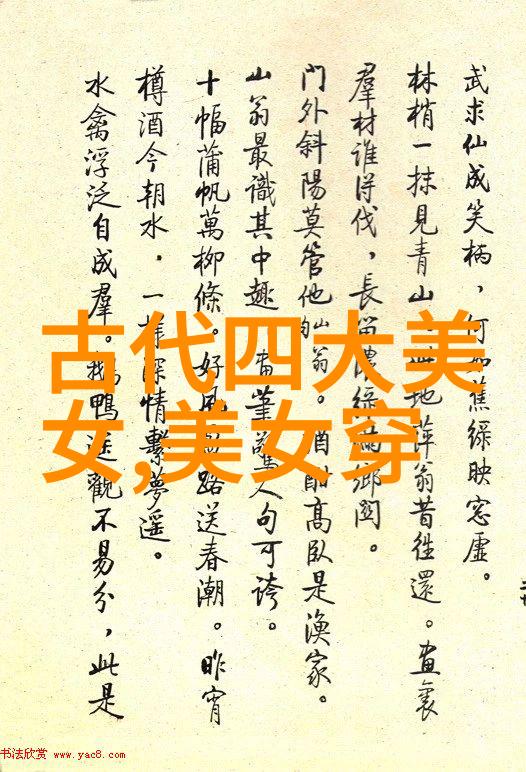 武求仙成笑柄，何如蕉綠映窓虛。
林梢一抹見青山。地萍翁昔往還。畫裏
羣材誰得伐，長留濃綠滿鄉閭。
門外斜陽莫管他。酒酣高臥是漁家。
山翁最識其中趣，筆驚人句可誇。
十幅蒲帆萬柳條。好風路送春潮。昨宵
樽酒今朝水，一樣深情繫夢遥。
水禽浮泛自成羣。鵝鴨遠觀不易分，此是
古代四大美
女,美女穿
书法欣赏 www.yac8.com